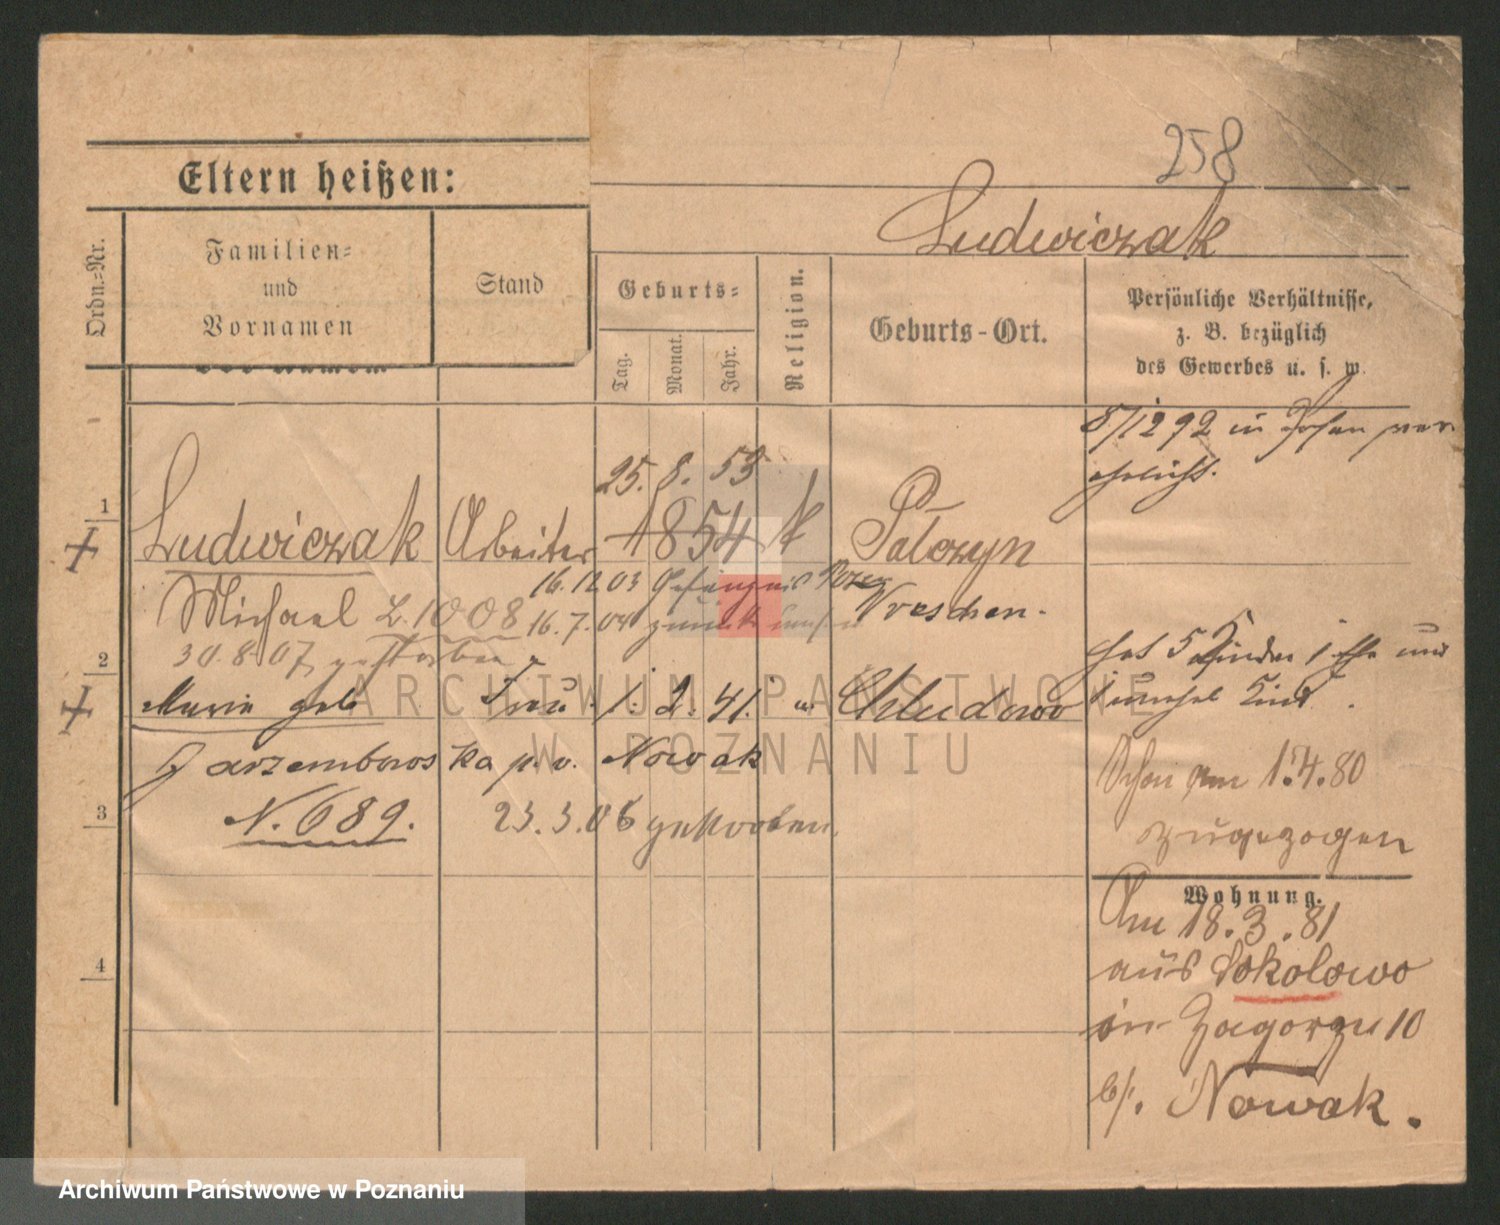 258
Eltern heißen:
Ludwiczak
Ordn.=Nr.
Familien=
und
Vornamen
Stand
Geburts=
Tag.
Monat.
Jahr.
Religion.
Geburts-Ort.
Persönliche Verhältnisse,
z. B. bezüglich
des Gewerbes u. s. w.
8/12 92 in Posen ver
ehelicht.
25. 8. 53
1
Ludwiczak Arbeiter 1854 k Palczyn
16.12.03 Gefängnis Wreschen.
Michael Z. 1008 16.7.04 zurück
30.8.07 gestorben
hat 5 Kinder 1 Ehe und
2
Marie geb Frau 1. 2. 41. " Chludowo
1 unehel Kind.
Jarzemborowska p. v. Nowak
N. 689. 23.3.06 gestorben.
3
Schon am 1.4.80
zugezogen
Wohnung.
Am 18.3.81
4
aus Sokolowo
in Zagorze 10
b/. Nowak.
ARCHIWUM PAŃSTWOWE
W POZNANIU
Archiwum Państwowe w Poznaniu